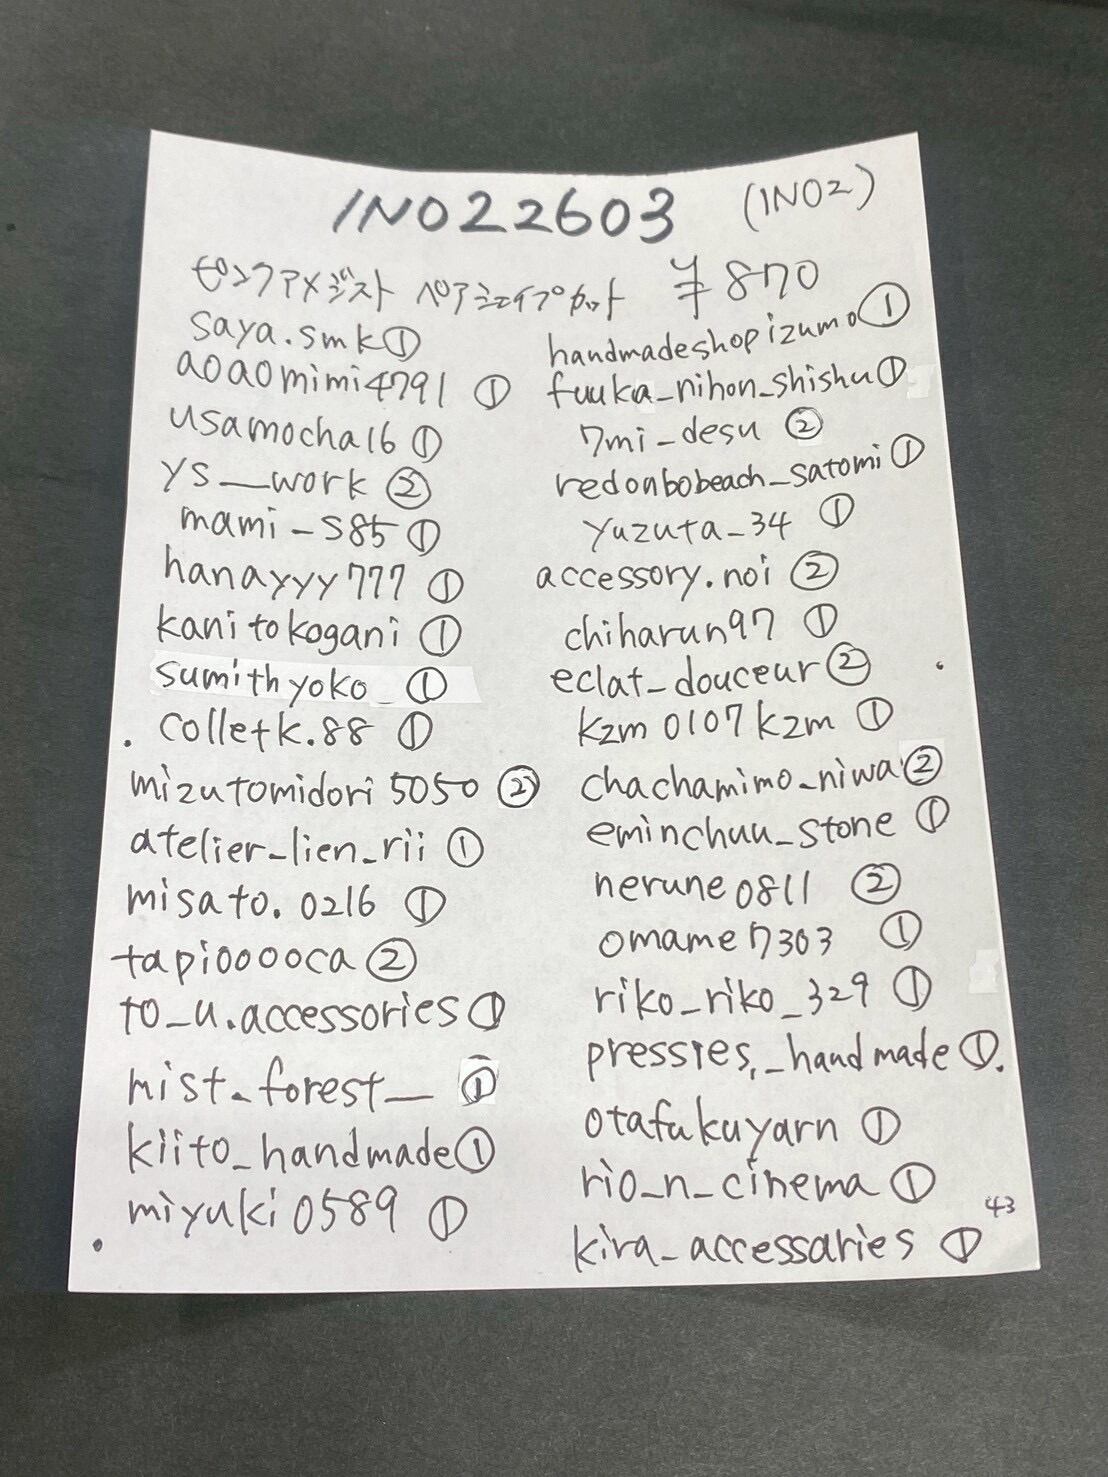 INO22603 (INO2)
ピンクアメジスト ペアシェイプカット ¥870
saya.smk①
aoaomimi4791 ①
usamocha16 ①
ys__work ②
mami_s85 ①
hanayyy777 ①
kanitokogani ①
sumithyoko_ ①
colletk.88 ①
mizutomidori5050 ②
atelier_lien_rii ①
misato.0216 ①
tapi0000ca ②
to_u.accessories ①
mist._forest__ ①
kiito_handmade ①
miyuki0589 ①
handmadeshopizumo ①
fuuka_nihon_shishu ①
7mi_desu ②
redonbobeach_satomi ①
yuzuta_34 ①
accessory.noi ②
chiharun97 ①
eclat_douceur ②
kzm0107kzm ①
chachamimo_niwa ②
eminchuu_stone ①
nerune0811 ②
omame7303 ①
riko_riko_329 ①
pressies._handmade ①.
otafukuyarn ①
rio_n_cinema ①
kira_accessaries ①
43